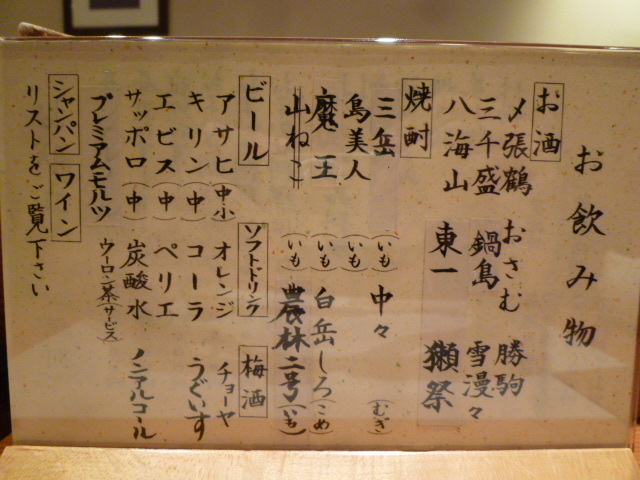 お飲み物
お酒
〆張鶴 おさむ 勝駒
三千盛 鍋島 雪漫々
八海山 東一 獺祭
焼酎
三岳（いも） 中々（むぎ）
島美人（いも）
魔王（いも） 白岳しろ（こめ）
山ねこ（いも） 農林二号（いも）
ビール ソフトドリンク 梅酒
アサヒ（中小） オレンジ チョーヤ
キリン（中） コーラ うぐいす
エビス（中） ペリエ
サッポロ（中） 炭酸水 ノンアルコール
プレミアムモルツ ウーロン茶（サービス）
シャンパン ワイン
リストをご覧下さい